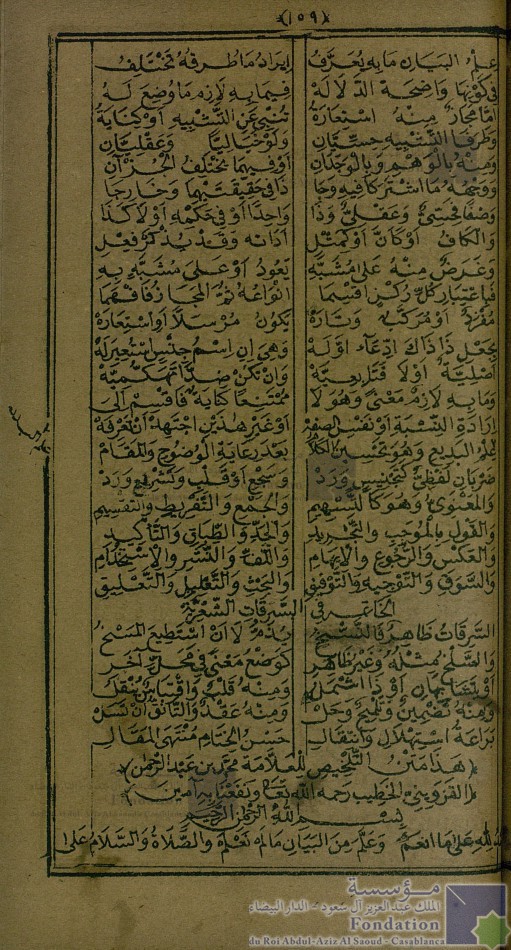 (١٥٩)
علم البيان ما به يعرف إيراد ما طرقه تختلف
في كونها واضحة الدلاله فيما به لازم ما وضع له
إما مجاز منه استعارة تنبي عن التشبيه أو كناية
وطرفا التشبيه حسيان ولو خياليا وعقليان
ومنه بالوهم وبالوجدان أو فيهما يختلف الجزآن
ووجهه ما اشتركا فيه وجا ذا في حقيقتيهما وخارجا
وصفا فحسي وعقلي وذا واحدا أو في حكمه أو لا كذا
والكاف أو كأن أو كمثل أداته وقد يذكر فعل
وغرض منه على مشبه يعود أو على مشبه به
فباعتبار كل ركن اقسما أنواعه ثم المجاز فافهما
مفرد أو مركب وتارة يكون مرسلا أو استعارة
بجعل ذا ذاك ادعاء أوله وهي إن اسم جنس استعير له
أصلية أو لا فتابعية وإن تكن ضدا تهكمية
وما به لازم معنى وهو لا ممتنعا كناية فاقسم إلى
إرادة النسبة أو نفس الصفه أو غير هذين اجتهد أن تعرفه
علم البديع وهو تحسين الكلام بعد رعاية الوضوح والمقام
ضربان لفظي كتجنيس ورد وسجع أو قلب وتشريع ورد
والمعنوي وهو كالتسهيم والجمع والتفريط والتقسيم
والقول بالموجب والتجريد والجد والطباق والتأكيد
والعكس والرجوع والإيهام واللف والنشر والاستخدام
والسوق والتوجيه والتوفيق والبحث والتعليل والتعليق
الخاتمة في السرقات الشعرية
السرقات ظاهر فالنسخ يذم لا إن استطيع المسخ
والسلخ مثله وغير ظاهر كوضع معنى في محل آخر
أو يتشابهان أو ذا أشمل ومنه قلب واقتباس ينقل
ومنه تضمين وتلميح وحل ومنه عقد والتأنق إن تسل
براعة استهلال وانتقال حسن الختام منتهى المقال
(هذا متن التلخيص للعلامة محمد بن عبد الرحمن)
(القزويني الخطيب رحمه الله تعالى ونفعنا به آمين)
بسم الله الرحمن الرحيم
لله على ما أنعم وعلم من البيان ما لم نعلم والصلاة والسلام على
مؤسسة
الملك عبد العزيز آل سعود - الدار البيضاء
Fondation
du Roi Abdul-Aziz Al Saoud - Casablanca